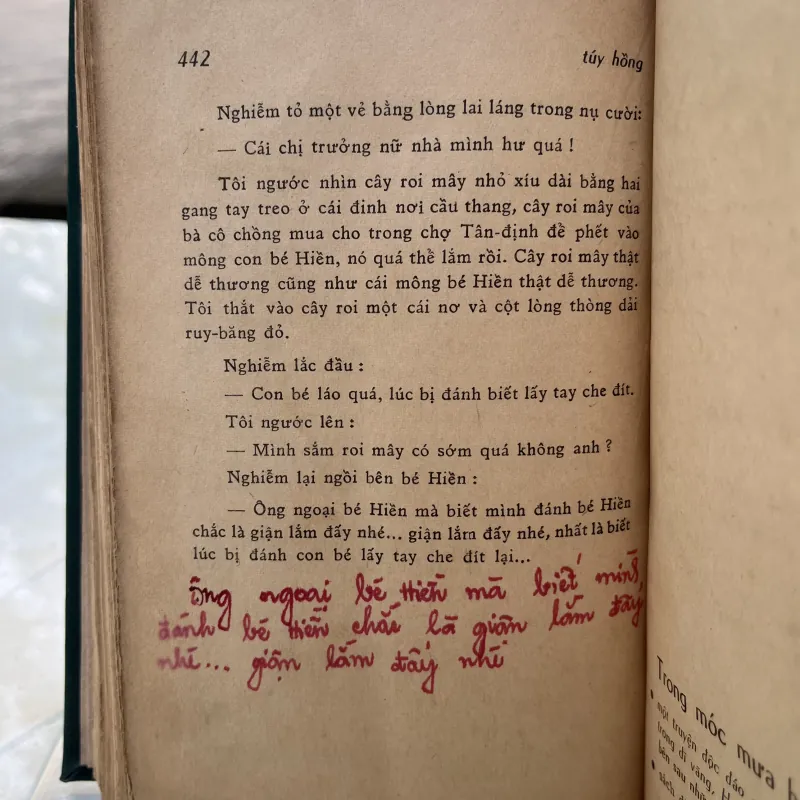 442
túy hồng
Nghiễm tỏ một vẻ bằng lòng lai láng trong nụ cười:
— Cái chị trưởng nữ nhà mình hư quá !
Tôi ngước nhìn cây roi mây nhỏ xíu dài bằng hai
gang tay treo ở cái đinh nơi cầu thang, cây roi mây của
bà cô chồng mua cho trong chợ Tân-định để phết vào
mông con bé Hiền, nó quá thể lắm rồi. Cây roi mây thật
dễ thương cũng như cái mông bé Hiền thật dễ thương.
Tôi thắt vào cây roi một cái nơ và cột lòng thòng dải
ruy-băng đỏ.
Nghiễm lắc đầu :
— Con bé láo quá, lúc bị đánh biết lấy tay che đít.
Tôi ngước lên :
— Mình sắm roi mây có sớm quá không anh ?
Nghiễm lại ngồi bên bé Hiền :
— Ông ngoại bé Hiền mà biết mình đánh bé Hiền
chắc là giận lắm đấy nhé... giận lắm đấy nhé, nhất là biết
lúc bị đánh con bé lấy tay che đít lại...
Ông ngoại bé Hiền mà biết mình
đánh bé Hiền chắc là giận lắm đấy
nhé... giận lắm đấy nhé
Trong móc mưa h
một truyện độc đáo
trong dĩ vãng,
bên sau những
sách